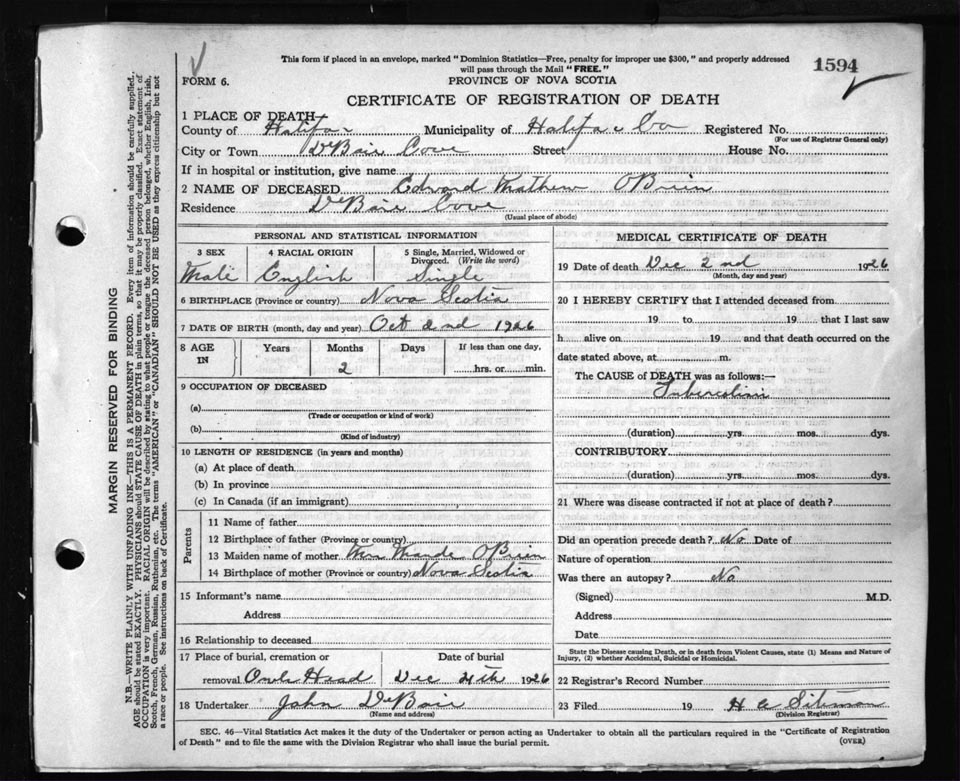 This form if placed in an envelope, marked "Dominion Statistics—Free, penalty for improper use $300," and properly addressed
will pass through the Mail "FREE."
1594
FORM 6.
PROVINCE OF NOVA SCOTIA
CERTIFICATE OF REGISTRATION OF DEATH
1 PLACE OF DEATH—
County of Halifax Municipality of Halifax Co Registered No.
(For use of Registrar General only)
City or Town DeBaie Cove Street House No.
If in hospital or institution, give name
2 NAME OF DECEASED Edward Mathew OBrien
Residence DeBaie Cove
(Usual place of abode)
PERSONAL AND STATISTICAL INFORMATION
3 SEX 4 RACIAL ORIGIN 5 Single, Married, Widowed or
Divorced. (Write the word)
Male English Single
6 BIRTHPLACE (Province or country) Nova Scotia
7 DATE OF BIRTH (month, day and year) Oct 2nd 1926
8 AGE IN Years Months Days If less than one day,
2 hrs. or min.
9 OCCUPATION OF DECEASED
(a)
(Trade or occupation or kind of work)
(b)
(Kind of industry)
10 LENGTH OF RESIDENCE (in years and months)
(a) At place of death
(b) In province
(c) In Canada (if an immigrant)
Parents
11 Name of father
12 Birthplace of father (Province or country)
13 Maiden name of mother Maude OBrien
14 Birthplace of mother (Province or country) Nova Scotia
15 Informant's name
Address
16 Relationship to deceased
17 Place of burial, cremation or Date of burial
removal Owls Head Dec 4th 1926
18 Undertaker John DeBaie
(Name and address)
MEDICAL CERTIFICATE OF DEATH
19 Date of death Dec 2nd 1926
(Month, day and year)
20 I HEREBY CERTIFY that I attended deceased from
19 to 19 that I last saw
h alive on 19 and that death occurred on the
date stated above, at m.
The CAUSE of DEATH was as follows:—
(duration) yrs. mos. dys.
CONTRIBUTORY
(duration) yrs. mos. dys.
21 Where was disease contracted if not at place of death?
Did an operation precede death? No Date of
Nature of operation
Was there an autopsy? No
(Signed) M.D.
Address
Date
State the Disease causing Death, or in death from Violent Causes, state (1) Means and Nature of
Injury, (2) whether Accidental, Suicidal or Homicidal.
22 Registrar's Record Number
23 Filed 19 H
(Division Registrar)
SEC. 46—Vital Statistics Act makes it the duty of the Undertaker or person acting as Undertaker to obtain all the particulars required in the "Certificate of Registration
of Death" and to file the same with the Division Registrar who shall issue the burial permit.
(OVER)
MARGIN RESERVED FOR BINDING
N.B.—WRITE PLAINLY WITH UNFADING INK—THIS IS A PERMANENT RECORD. Every item of information should be carefully supplied.
AGE should be stated EXACTLY. PHYSICIANS should STATE CAUSE OF DEATH in plain terms, so that it may be properly classified. Exact statement of
OCCUPATION is very important. RACIAL ORIGIN will be described by stating to what people or tongue the deceased person belonged, whether English, Irish,
Scotch, French, German, Russian, Ruthenian, etc. The terms "AMERICAN" or "CANADIAN" SHOULD NOT BE USED as they express citizenship but not
a race or people. See instructions on back of Certificate.